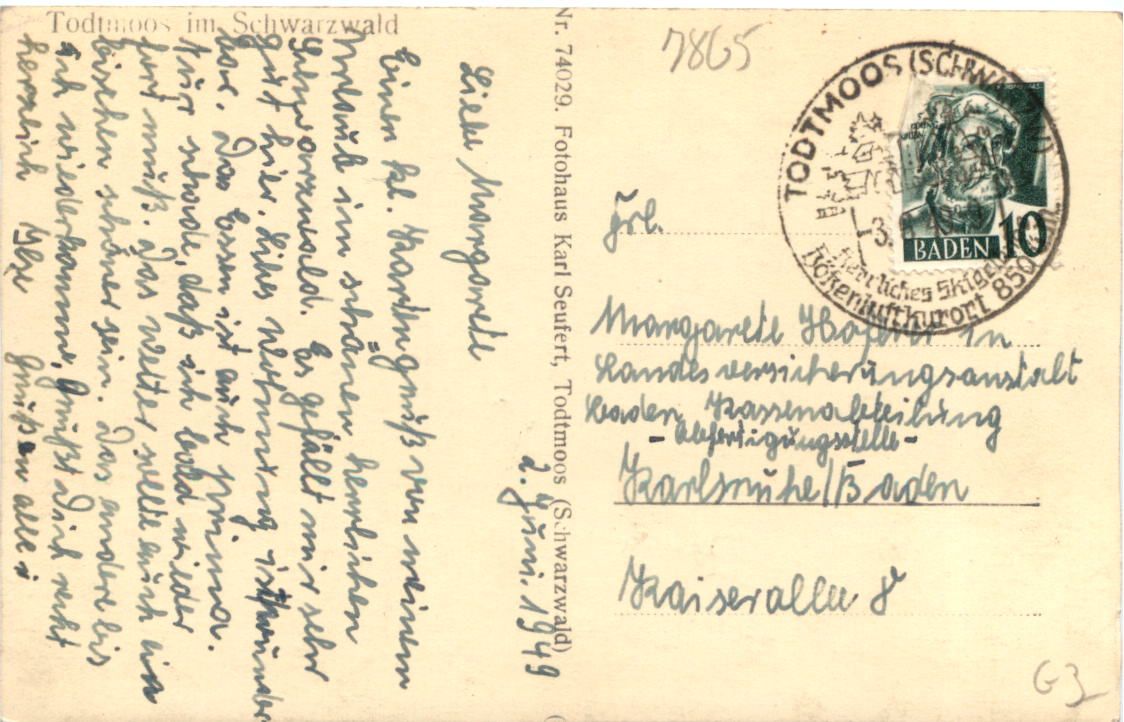 Todtmoos im Schwarzwald
2. Juni. 1949
Liebe Margarete
Einen kl. Kartengruß von meinem
Urlaub im schönen herrlichen
Schwarzwald. Es gefällt mir sehr
gut hier. Liebes Wohnung ist wunder
bar. Das Essen ist auch prima.
Nur schade, daß ich bald wieder
fort muß. Das Wetter sollte auch ein
bischen schöner sein. Das andere bis
ich wiederkomme, Grüßt Dich recht
herzlich Grüße an alle
Nr. 74029. Fotohaus Karl Seufert, Todtmoos (Schwarzwald)
7865
TODTMOOS (SCHWA
3. 6. 
Herrliches Skige
Höhenluftkurort 850
BADEN 10
Frl.
Margarete
Landesversicherungsanstalt
Baden Kassenabteilung
- Abfertigungsstelle -
Karlsruhe/Baden
Kaiserallee 8
G3